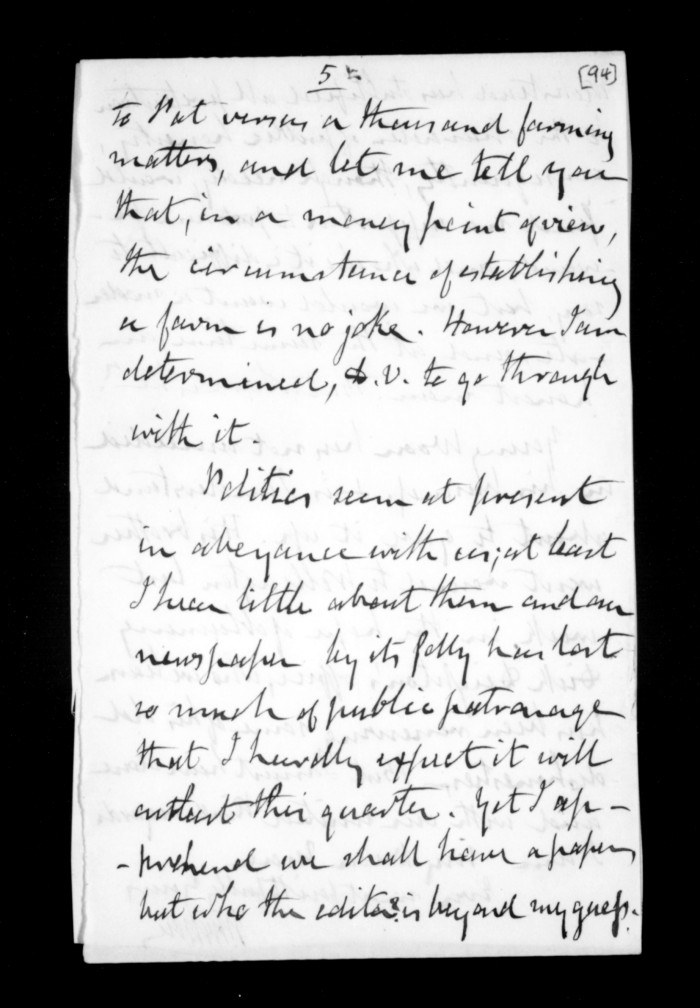 5
[94]
to Pat versus a thousand farming
matters, and let me tell you
that, in a money point of view,
the circumstance of establishing
a farm is no joke. However I am
determined, D.V. to go through
with it
Politics seem at present
in abeyance with us; at least
I hear little about them and our
newspaper by its folly has lost
so much of public patronage
that I hardly expect it will
outlast this quarter. Yet I ap-
-prehend we shall have a paper
but who the editor is beyond my guess.